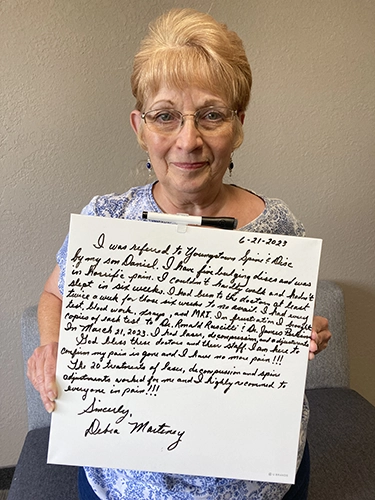 6-21-2023
I was referred to Youngstown Spine & Disc
by my son Daniel. I have five bulging discs and was
in horrific pain. I couldn't hardly walk and hadn't
slept in six weeks. I had been to the doctors at least
twice a week for those six weeks to no avail. I had every
test, blood work, xrays, and MRI. In frustration I
copies of each test to Dr. Ronald Rascilli & Dr. James
In March 31, 2023, I had laser, decompression, and adjustments
God bless these doctors and their staff. I am here to
confirm my pain is gone and I have no more pain!!!
The 20 treatments of laser, decompression and spine
adjustments worked for me and I highly recommend to
everyone in pain!!!
Sincerely,
Debra Marteney